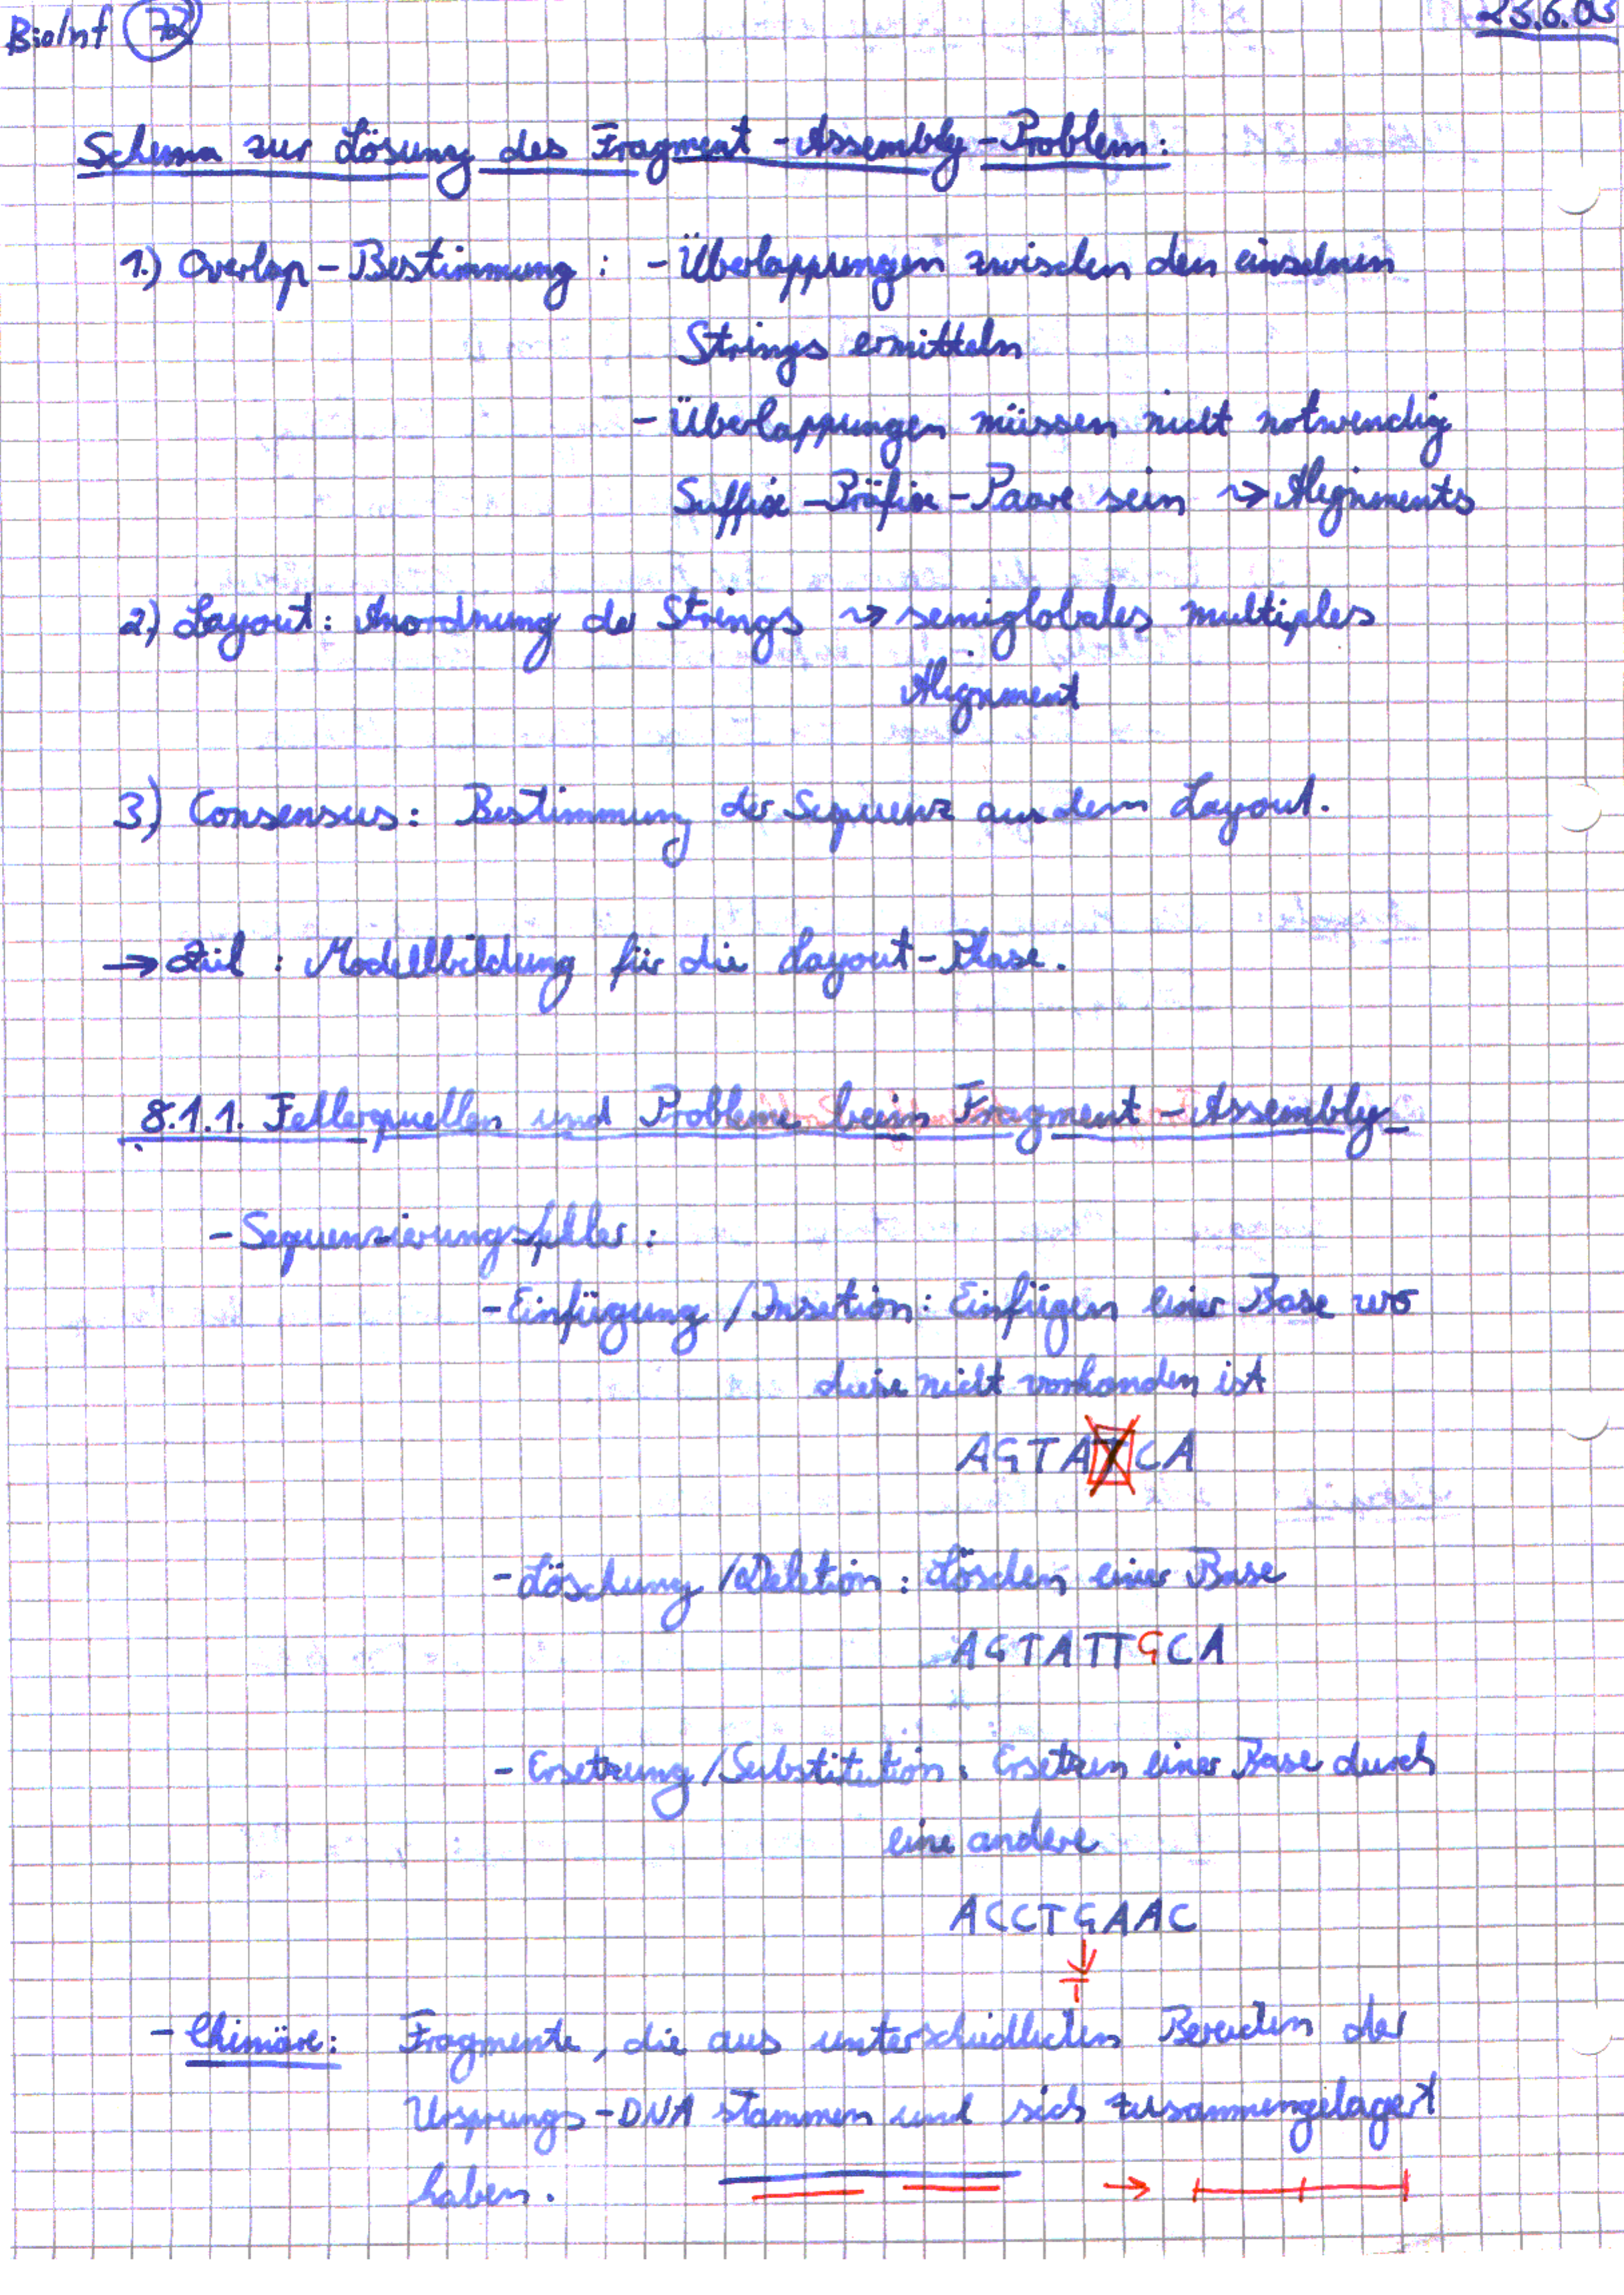 BioInf 72
23.6.03
Schema zur Lösung des Fragment-Assembly-Problem:
1.) Overlap-Bestimmung: - Überlappungen zwischen den einzelnen
Strings ermitteln
- Überlappungen müssen nicht notwendig
Suffix-Präfix-Paare sein ⇝ Alignments
2.) Layout: Anordnung der Strings ⇝ semiglobales multiples
Alignment
3) Consensus: Bestimmung der Sequenz aus dem Layout.
→ Ziel: Modellbildung für die Layout-Phase.
8.1.1. Fehlerquellen und Probleme beim Fragment-Assembly
- Sequenzierungsfehler:
- Einfügung/Insertion: Einfügen einer Base wo
diese nicht vorhanden ist
AGTATCA
- Löschung/Deletion: Löschen einer Base
AGTATTGCA
- Ersetzung/Substitution: Ersetzen einer Base durch
eine andere
ACCTGAAC
T
- Chimäre: Fragmente, die aus unterschiedlichen Bereichen der
Ursprungs-DNA stammen und sich zusammengelagert
haben. →